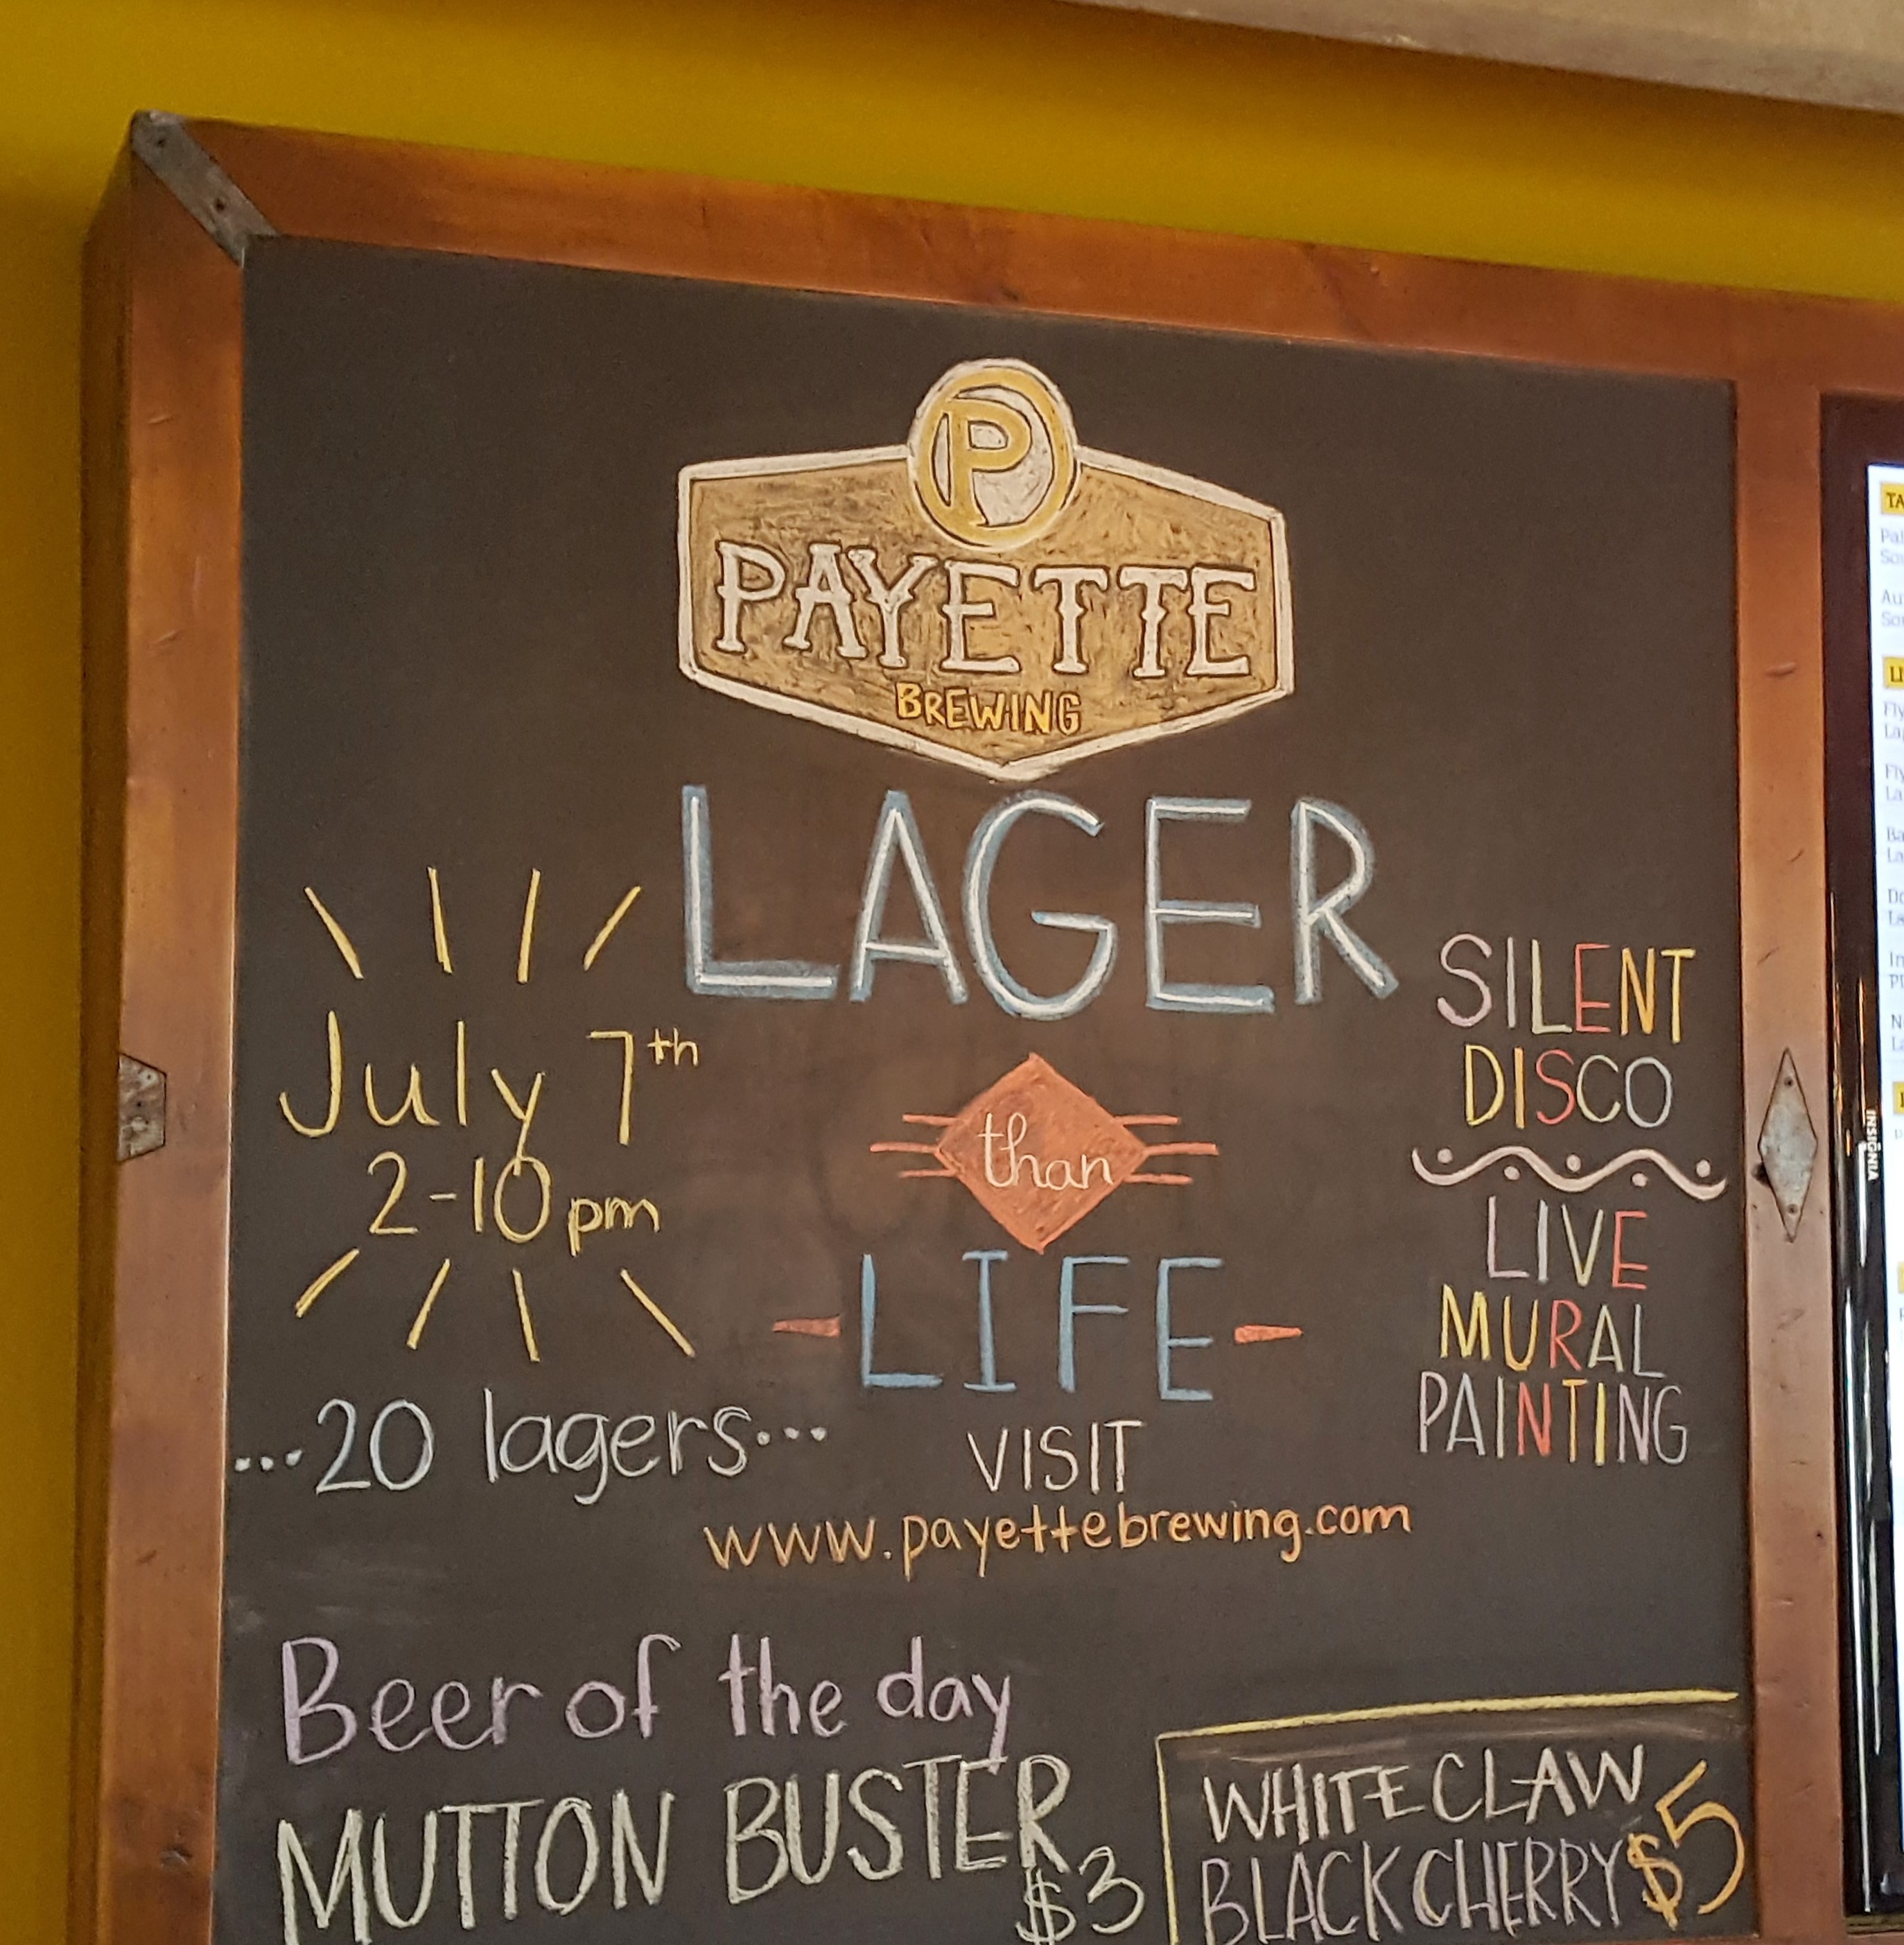 P
PAYETTE
BREWING
LAGER
than
LIFE
July 7th
2-10pm
...20 lagers...
SILENT
DISCO
LIVE
MURAL
PAINTING
VISIT
www.payettebrewing.com
Beer of the day
MUTTON BUSTER
$3
WHITE CLAW
BLACK CHERRY $5
INSIGNIA